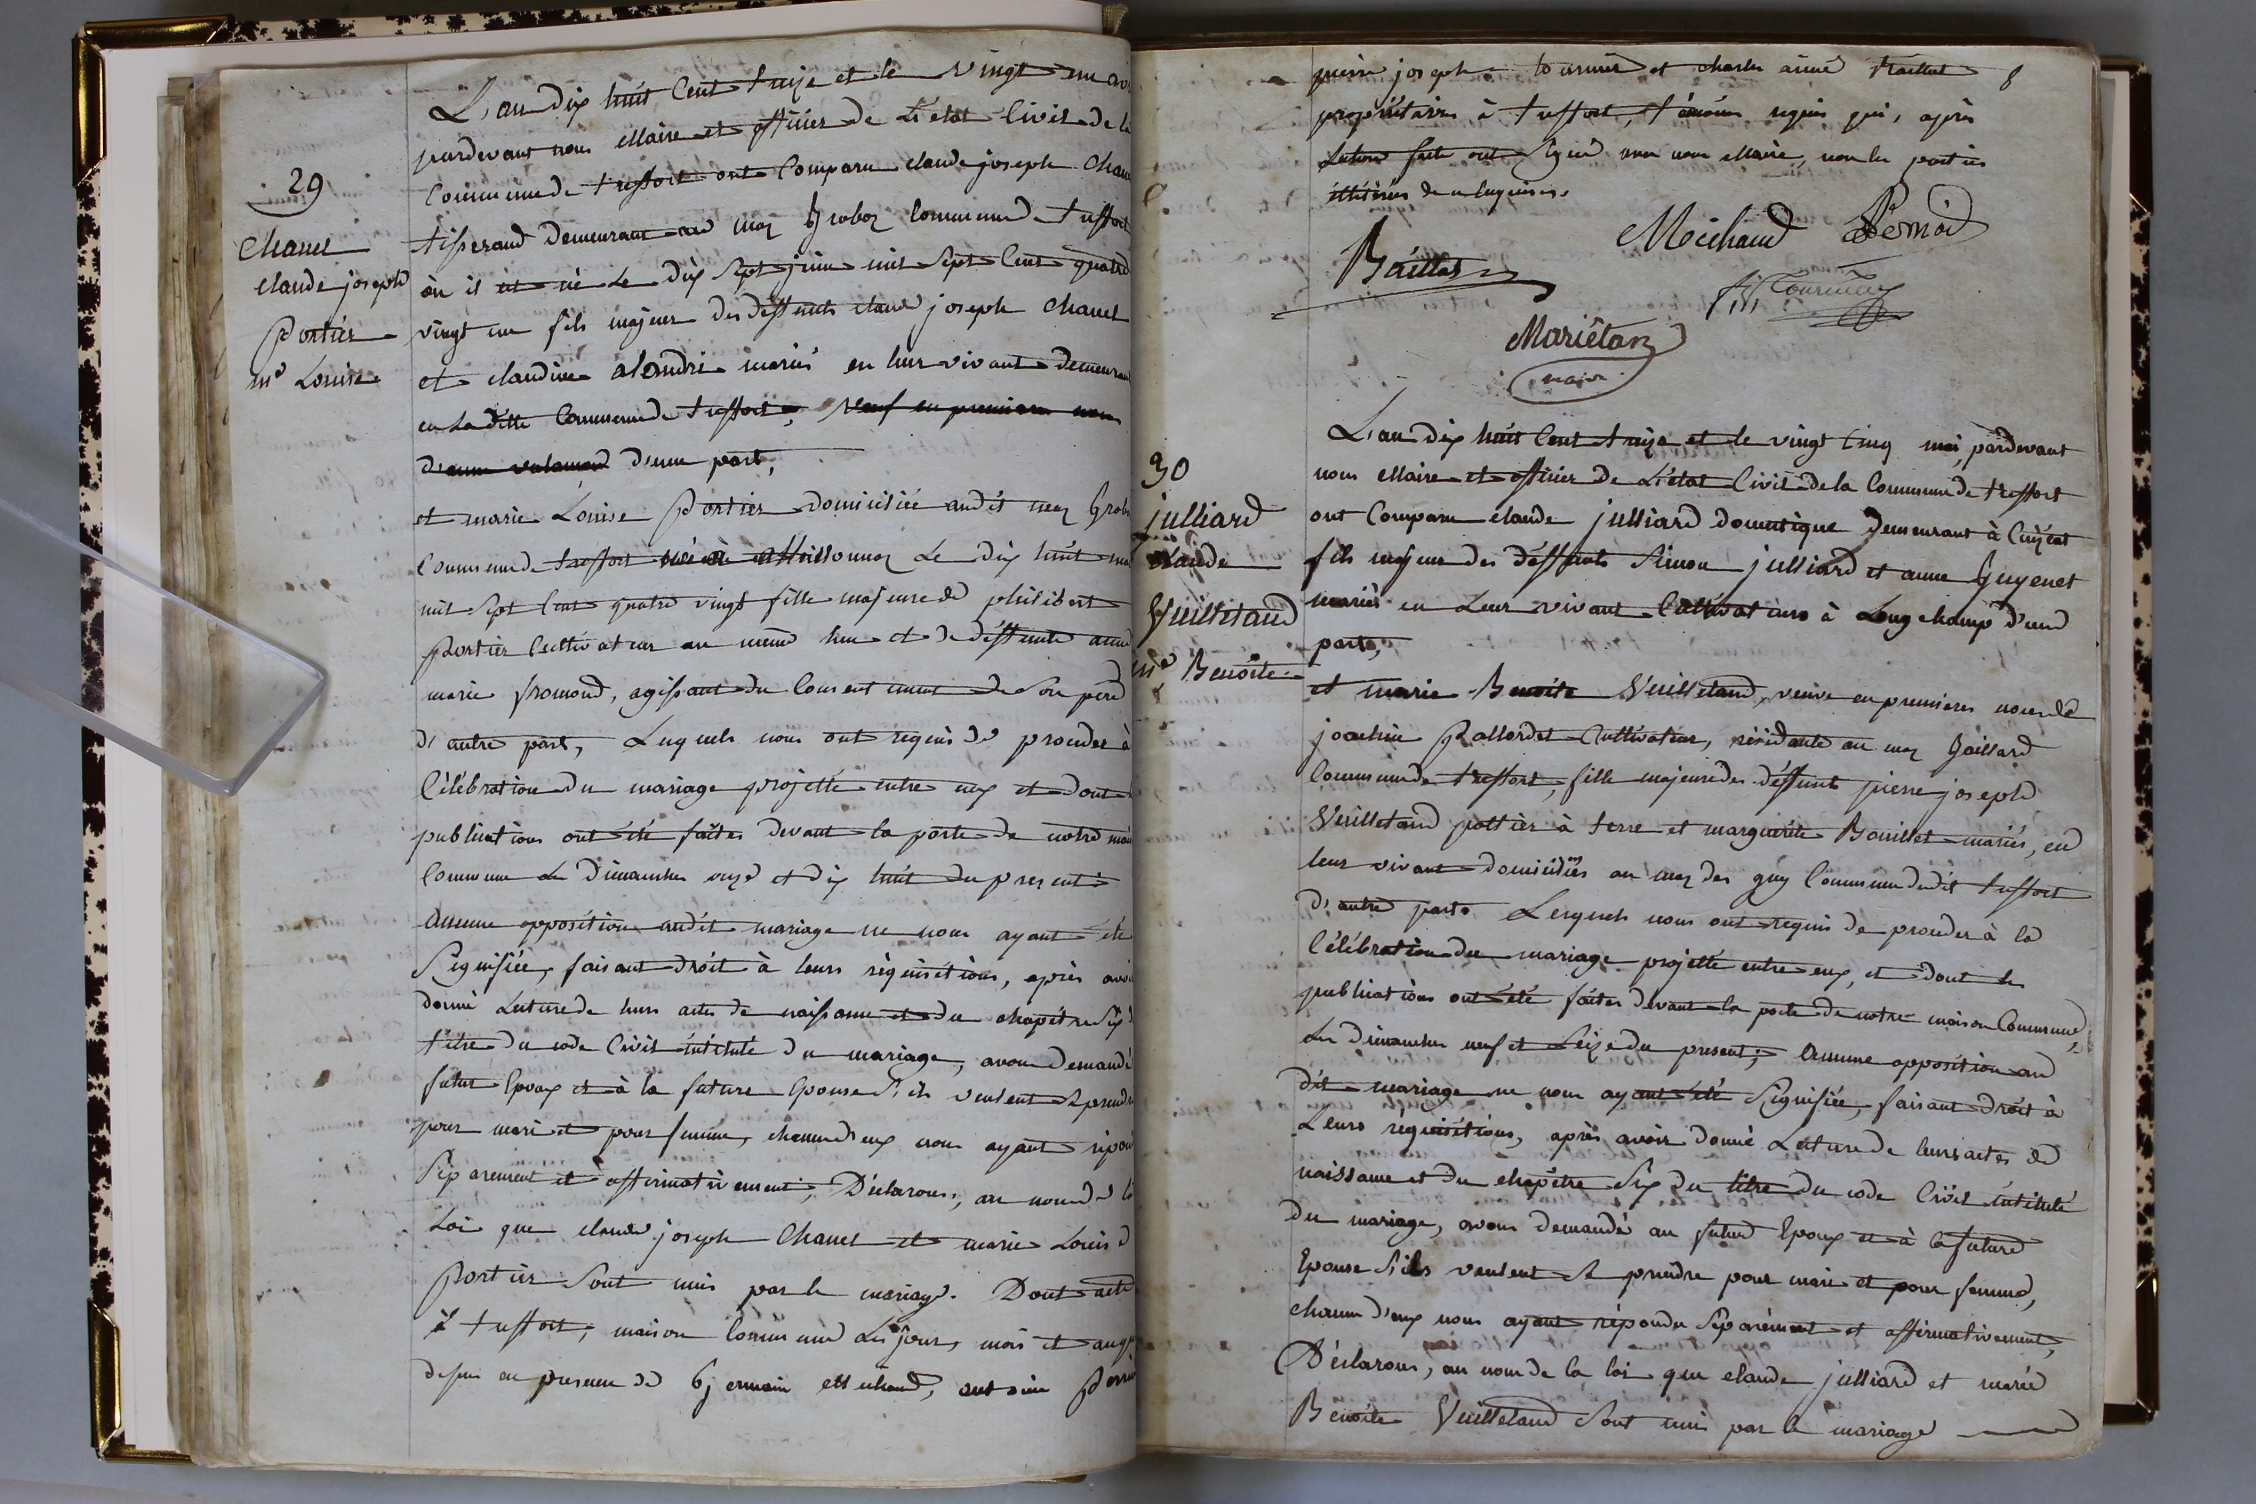 29
Chanel
claude joseph
Portier
me Louise
L'an dix huit Cent treize et le vingt
pardevant nous Maire et officier de L'état Civil de la
Commune de treffort ont Comparu claude joseph Chan
tisserand demeurant au maz Groboz Commune de treffort
où il est né Le dix Sept juin mil Sept Cent quatre
vingt un fils majeur des déffunts claude joseph Chanel
et claudine alondri mariés en leur vivant demeurant
en La ditte Commune de treffort, Veuf en premieres
d'une part,
et marie Louise Portier domiciliée audit maz Grob
Commune de treffort née à Meillonnaz Le dix huit
mil Sept Cent quatre vingt fille majeure de philibert
Portier Cultivateur au même lieu et de déffunte anne
marie fromond, agissant du Consentement de Son père
d'autre part, Lesquels nous ont requis de proceder à
Célébration du mariage projetté entre eux et dont
publications ont été faites devant la porte de notre mai
Commune Les Dimanches onze et dix huit du present
Aucune opposition audit mariage ne nous ayant été
Signifiée, faisant droit à leurs réquisitions, après avoi
donné Lecture de leurs actes de naissance et du chapitre Six
titre du code Civil intitulé du mariage, avons demandé
futur Epoux et à la future Epouse S'ils veulent Se prendre
pour mari et pour femme, chacun d'eux nous ayant répon
Séparement et affirmativement, Déclarons, au nom de la
Loi que claude joseph Chanel et marie Louise
Portier Sont unis par le mariage. Dont acte
à treffort, maison Commune Les jour, mois et an
dessus en presence de Germain Michaud, antoine
pierre joseph tournier et charles aimé 8
propriétaires à treffort, témoins requis qui, après
Lecture faite ont Signé avec nous Maire, non les parties
illitérées de ce Enquises.
Michaud
Baillat
Tournier
Mariétan
maire
30
julliard
claude
Vuilletand
me Benoite
L'an dix huit Cent treize et le vingt Cinq mai, pardevant
nous Maire et officier de L'état Civil de la Commune de treffort
ont Comparu claude julliard domestique demeurant à Cuiziat
fils majeur des déffunts Simon julliard et anne Guyenet
mariés en Leur vivant Cultivateurs à Longchamp d'une
part,
et marie Benoite Vuilletand, veuve en premieres noces de
joachim Cultivateur, résidante au maz Gaillard
Commune de treffort, fille majeure des déffunts pierre joseph
Vuilletand pottier à terre et marguerite Bouillet mariés, en
leur vivant domiciliés au maz des guy Commune dudit treffort
d'autre part. Lesquels nous ont requis de proceder à la
Célébration du mariage projetté entre eux, et dont les
publications ont été faites devant la porte de notre maison Commune,
Les Dimanches neuf et Seize du present, Aucune opposition au
dit mariage ne nous ayant été Signifiée, faisant droit à
Leurs requisitions, après avoir donné Lecture de leurs actes de
naissance et du chapitre Six du titre du code Civil intitulé
du mariage, avons demandé au futur Epoux et à la future
Epouse S'ils veulent Se prendre pour mari et pour femme,
chacun d'eux nous ayant répondu Séparément et affirmativement,
Déclarons, au nom de la loi que claude julliard et marie
Benoite Vuilletand Sont unis par le mariage